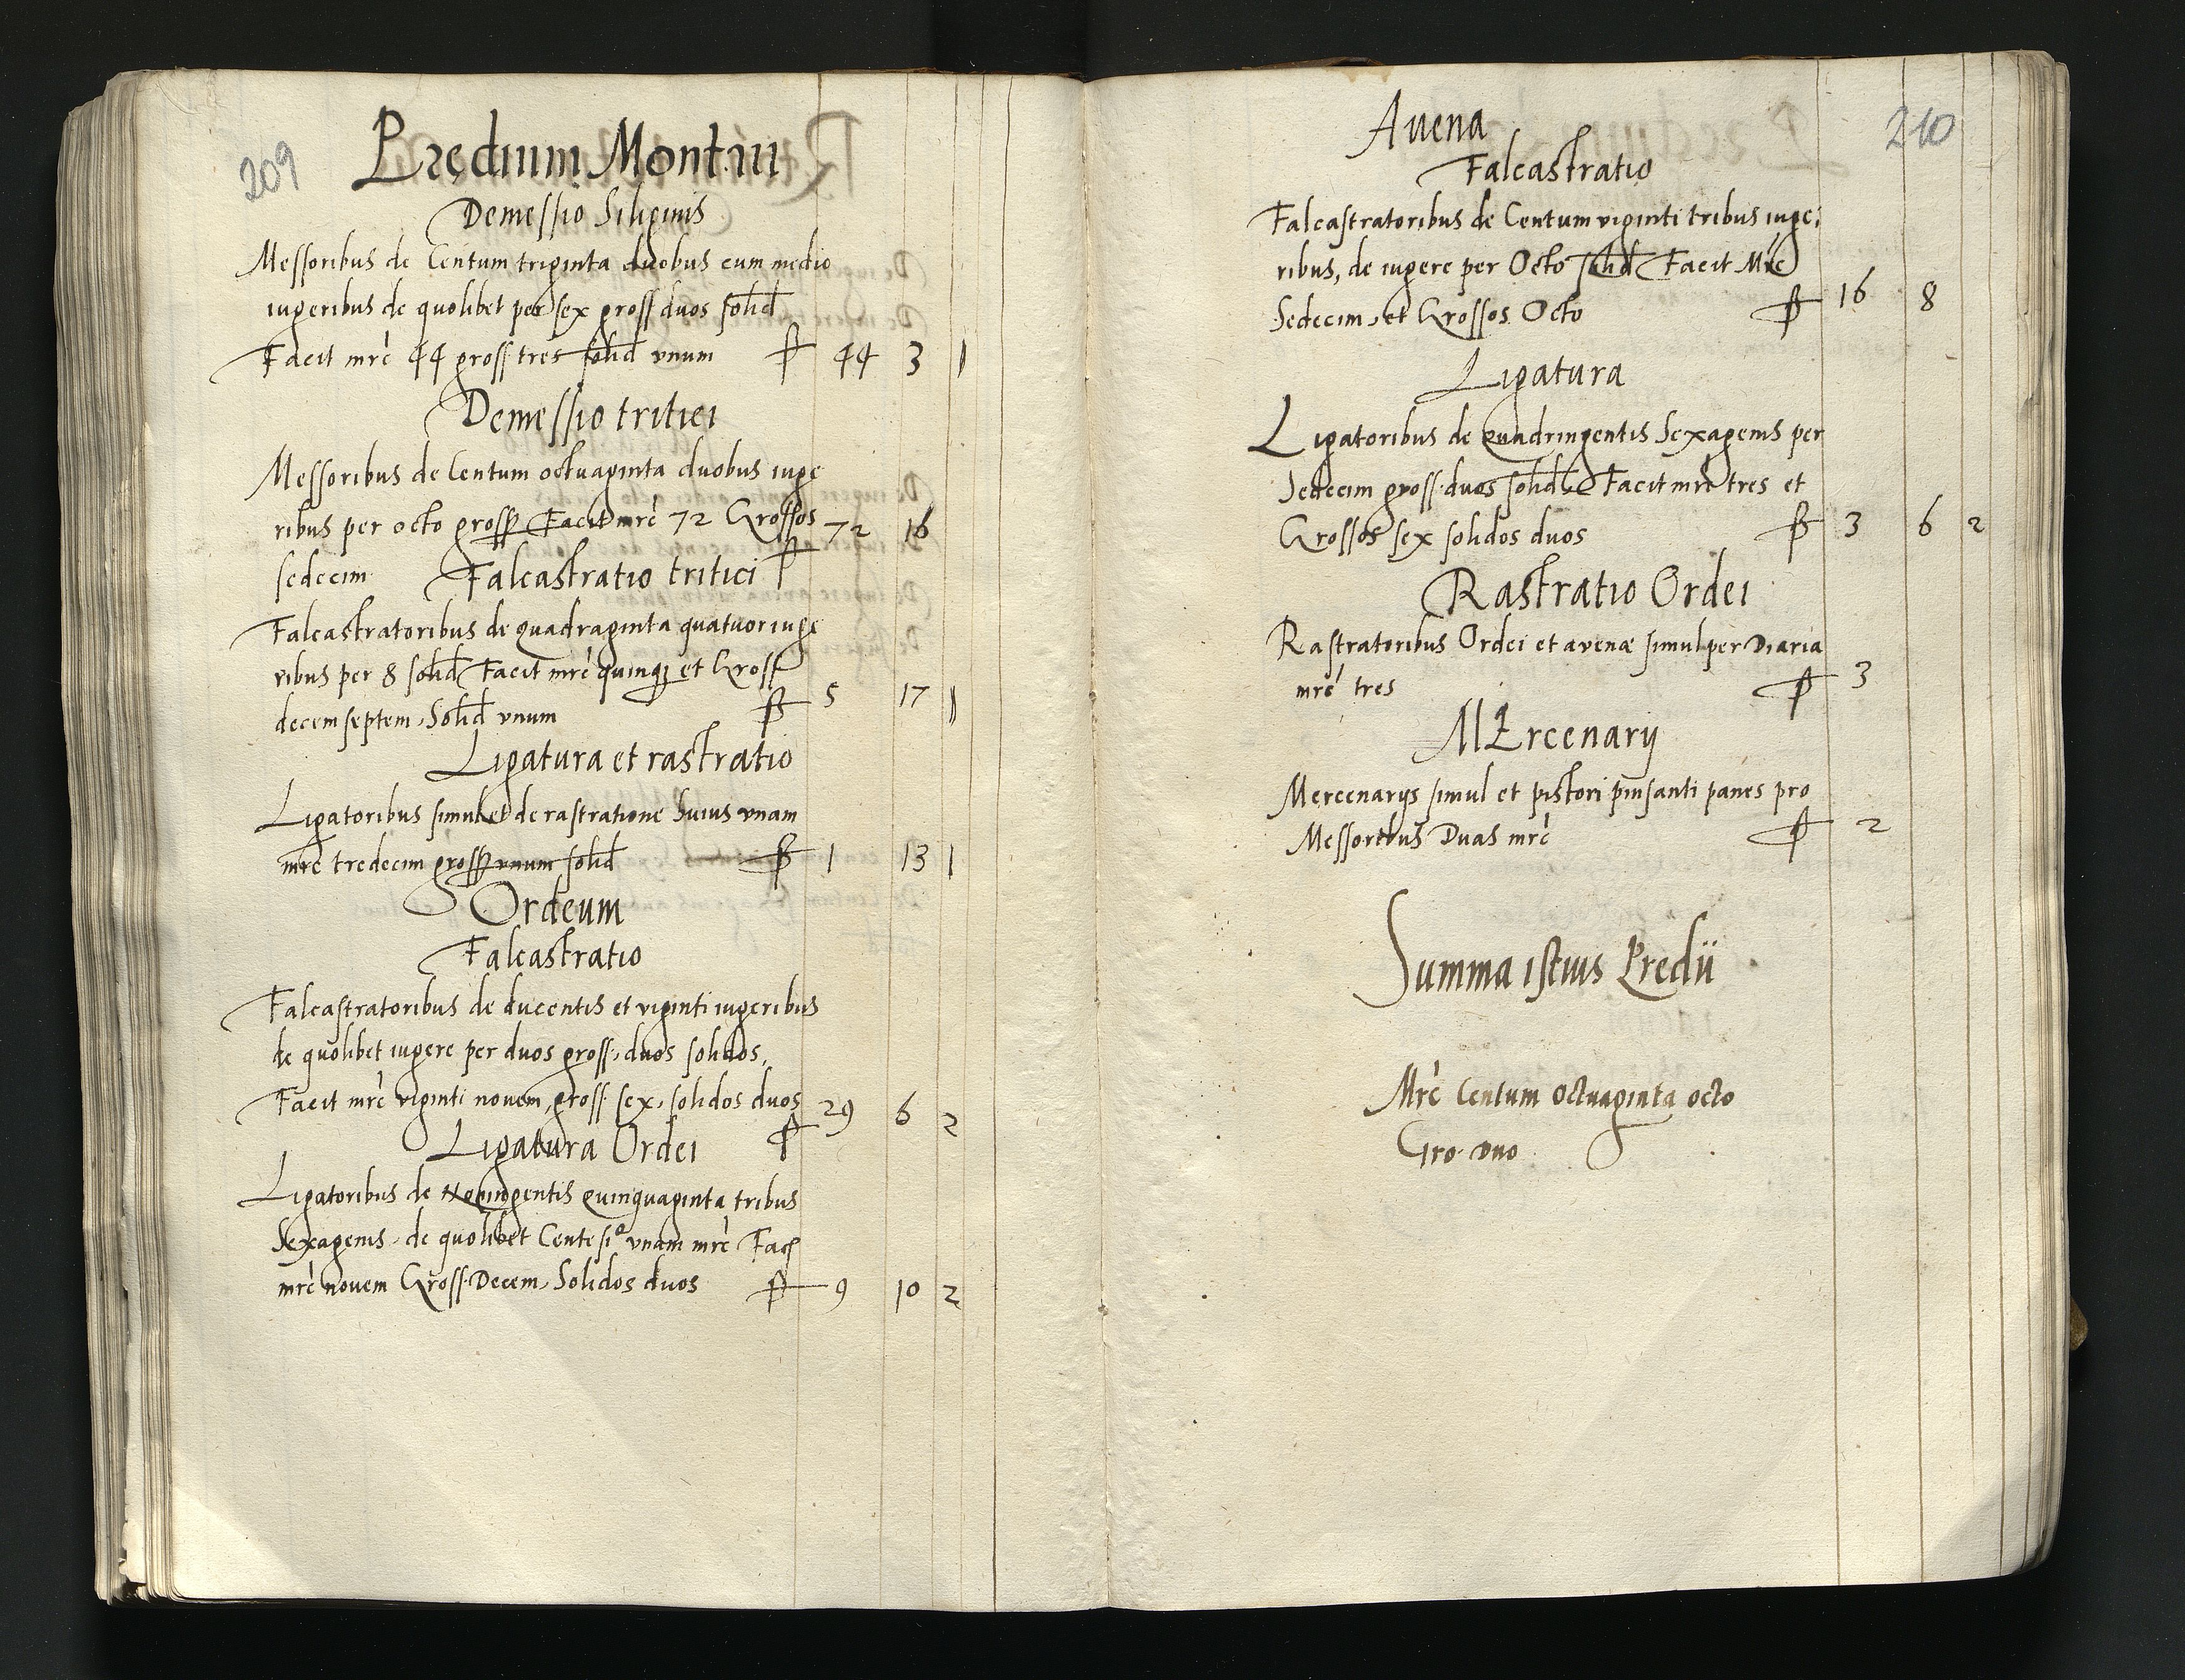 209
Prędium Montiu
Demessio Siliginis
Messoribus de Centum triginta duobus cum medio
iugeribus de quolibet per sex gross duos solid
Facit mrc 44 gross tres solid vnum 44 3 1
Demessio tritici
Messoribus de Centum octuaginta duobus iuge
ribus per octo gross Facit mrc 72 Grossos 72 16
sedecim
Falcastratio tritici
Falcastratoribus de quadraginta quatuor iuge
ribus per 8 solid Facit mrc quinq et Gross
decem septem, Solid vnum 5 17 1
Ligatura et rastratio
Ligatoribus simul et de rastratione huius vnam
mrc tredecim gross vnum solid 1 13 1
Ordeum
Falcastratio
Falcastratoribus de ducentis et viginti iugeribus
de quolibet iugere per duos gross, duos solidos,
Facit mrc viginti novem, gross sex, solidos duos 29 6 2
Ligatura Ordei
Ligatoribus de Noningentis quinquaginta tribus
Sexagenis, de quolibet Centesia vnam mrc Fac
mrc novem Gross Decem, Solidos duos 9 10 2
210
Auena
Falcastratio
Falcastratoribus de Centum viginti tribus iuge
ribus, de iugere per Octo solid Facit Mrc
Sedecim, et Grossos Octo 16 8
Ligatura
Ligatoribus de quadringentis Sexagenis per
Sedecim gross duos solid, Facit mrc tres et
Grossos sex solidos duos 3 6 2
Rastratio Ordei
Rastratoribus Ordei et avenæ simul per Diaria
mrc tres 3
MErcenarij
Mercenarijs simul et pistori pinsanti panes pro
Messoribus Duas mrc 2
Summa istius Predii
Mrc Centum octuaginta octo
Gro. duo